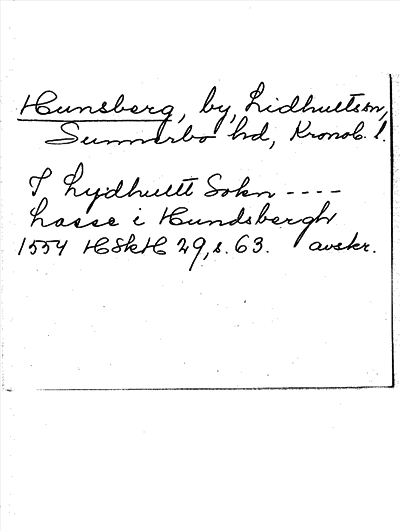 Hunsberg, by, Lidhultsn,
Sunnerbo hd, Kronob. l.
I Lydhultt Sokn ----
Lasse i Hundsbergh
1554 HSkH 29, s. 63. avskr.